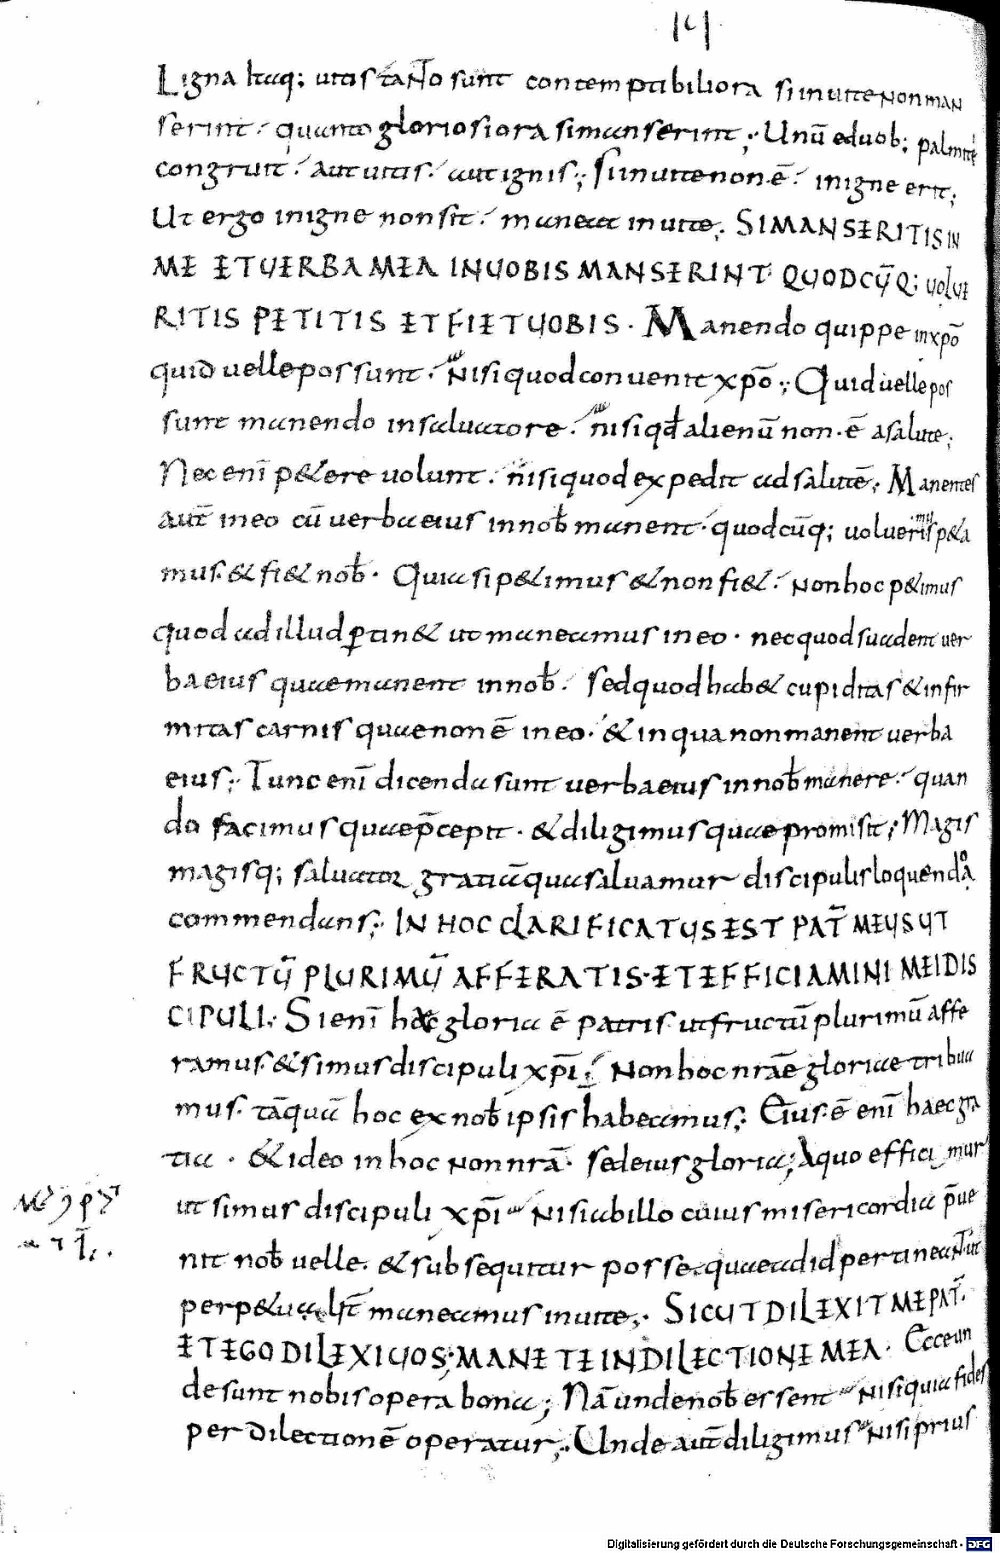 14
Ligna itaq; uitis tanto sunt contemptibiliora si in uite non man
serint. quanto gloriosiora si manserint; Unū e duob; palmiti
congruit. aut uitis. aut ignis; Si in uite non ē. in igne erit;
Ut ergo in igne non sit. maneat in uite; SI MANSERITIS IN
ME ET UERBA MEA IN UOBIS MANSERINT QUODCŪQ; UOLUE
RITIS PETITIS ET FIET UOBIS. Manendo quippe in xp̄o
quid uelle possunt. nisi quod conuenit xp̄o; Quid uelle pos
sunt manendo in saluatore. nisi qđ alienū non ē a salute;
Nec enī p&ere uolunt. nisi quod expedit ad salutē; Manentes
aut̄ in eo cū uerba eius in nob̄ manent. quodcūq; uoluerimus p&a
mus. & fi& nob̄. Quia si p&imus & non fi&. non hoc p&imus
quod ad illud ptin& ut maneamus in eo. nec quod suadent uer
ba eius quae manent in nob̄. sed quod hab& cupiditas & infir
mitas carnis quae non ē in eo. & in qua non manent uerba
eius; Tunc enī dicenda sunt uerba eius in nob̄ manere. quan
do facimus quae p̄cepit. & diligimus quae promisit; Magis
magisq; saluator gratiā qua saluamur discipulis loquendo
commendans; IN HOC CLARIFICATUS EST PAT̄ MEUS UT
FRUCTŪ PLURIMŪ AFFERATIS. ET EFFICIAMINI MEI DIS
CIPULI. Si enī hac gloria ē patris ut fructū plurimū affe
ramus. & simus discipuli xp̄i. Non hoc nr̄ae gloriae tribua
mus. tāquā hoc ex nob̄ ipsis habeamus; Eius ē enī haec gra
tia. & ideo in hoc non nr̄a. sed eius gloria; A quo efficimur
ut simus discipuli xp̄i nisi ab illo cuius misericordia p̄ue
nit nob̄ uelle. & subsequitur posse. quae ad id pertineant ut
perp&ua lit̄ maneamus in uite; SICUT DILEXIT ME PAT̄
ET EGO DILEXI UOS; MANETE IN DILECTIONE MEA. Ecce un
de sunt nobis opera bona; Nā unde nob̄ essent nisi quia fides
per dilectionē operatur; Unde aut̄ diligimus nisi prius